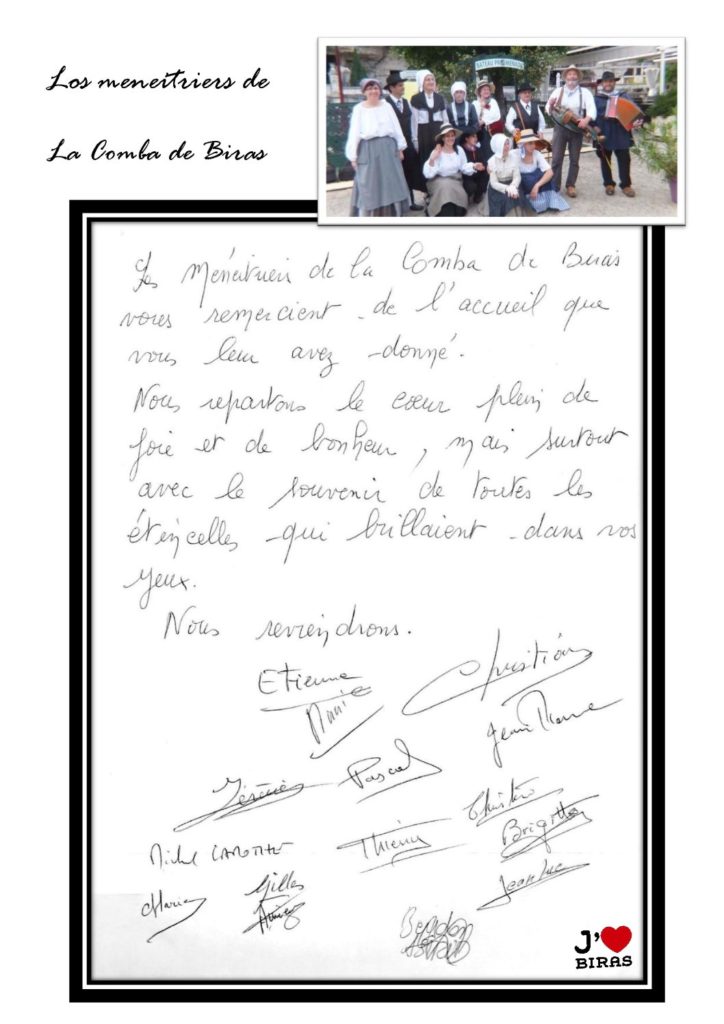 Los meneitriers de
La Comba de Biras
BATEAU PROMENADE
Les Ménéitriers de la Comba de Biras
vous remercient de l'accueil que
vous leur avez donné.
Nous repartons le cœur plein de
joie et de bonheur, mais surtout
avec le souvenir de toutes les
étincelles qui brillaient dans vos
yeux.
Nous reviendrons.
Etienne
Christian
Annie
Jean Marie
Jérémie
Pascal
Christine
Brigitte
Michel
Thierry
Jean Luc
Marie
Gilles
J'❤
BIRAS